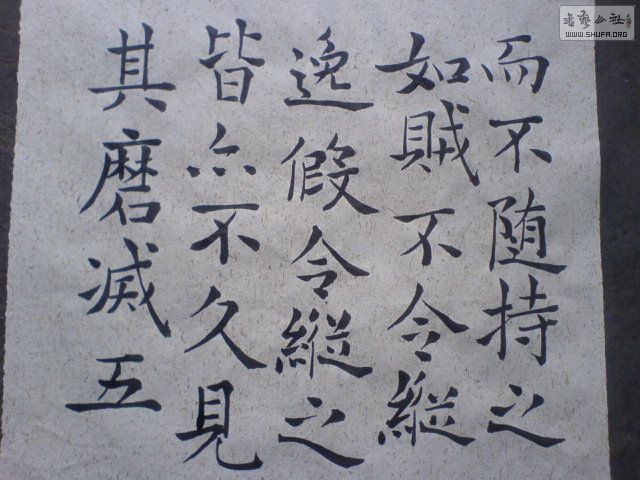 而不随持之
如賊不令縦
逸假令縦之
皆亦不久見
其磨滅五
書藝公社
WWW.SHUFA.ORG